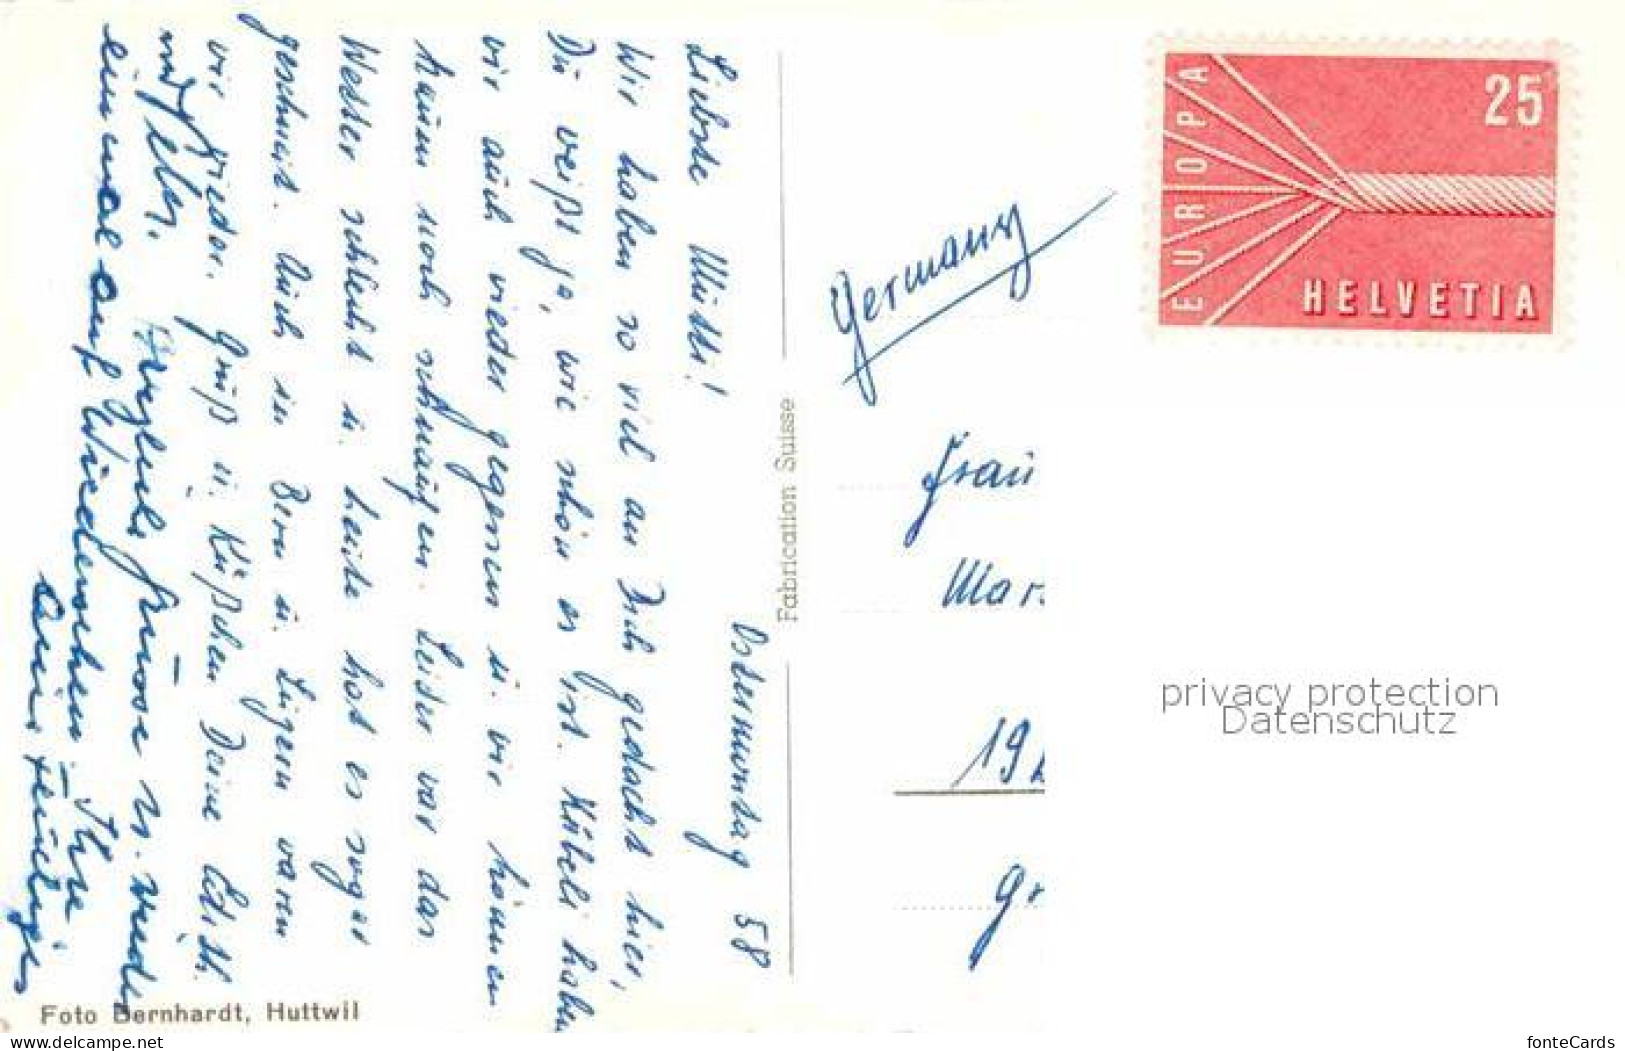 Ostermontag 58
Liebste Mutti!
Wir haben so viel an Dich gedacht hier,
Du weißt ja, wie schön es ist. Köbeli haben
wir auch wieder gegessen u. wir können
kaum noch schnaufen. Leider war das
Wetter schlecht u. heute hat es sogar
geschneit. Auch in Bern u. Luzern waren
wir wieder. Gruß u. Küßchen Deine Edith
und
Grüsse u. wieder
einmal auf Wiedersehen - Ihre
Foto Bernhardt, Huttwil
Fabrication Suisse
Germany
Frau
Mar
19
Gr
EUROPA
25
HELVETIA
privacy protection
Datenschutz
www.delcampe.net
fonteCards